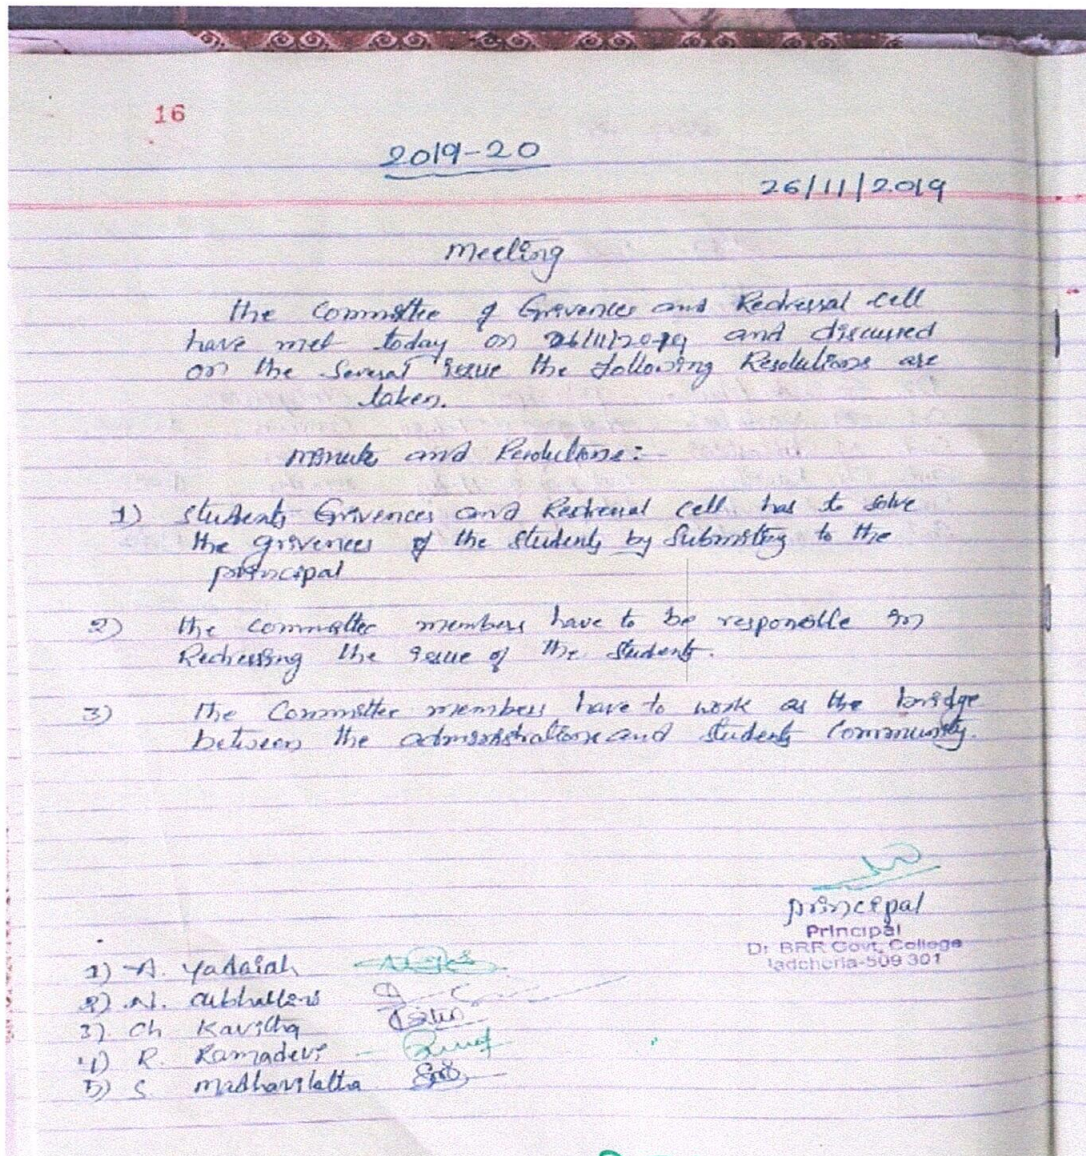 16
2019-20
26/11/2019
Meeting
The Committee of Grivences and Redressal cell
have met today on 26/11/2019 and discussed
on the several issue the following Resolutions are
taken.
Minute and Resolutions:-
1) Students Grivences and Redressal cell has to solve
the grivences of the students by Submitting to the
principal
2) The committee members have to be responsible in
Redressing the issue of the students.
3) The Committee members have to work as the bridge
between the administrations and students Community.
principal
Principal
Dr BRR Govt. College
Jadcherla-509 301
1) A. Yadaiah
2) N.
3) Ch Kavitha
4) R. Ramadevi
5) S. Madhavilatha